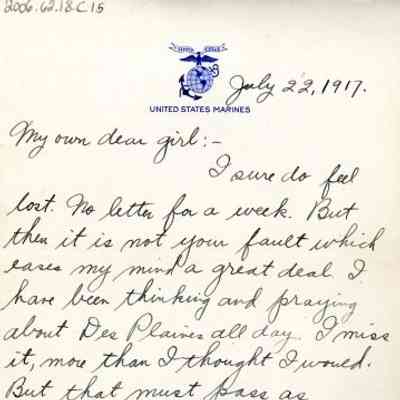 2006.62.18.C15
SEMPER FIDELIS
UNITED STATES MARINES
July 22, 1917.
My own dear girl:-
I sure do feel
lost. No letter for a week. But
then it is not your fault which
eases my mind a great deal. I
have been thinking and praying
about Des Plaines all day. I miss
it, more than I thought I would.
But that must pass as